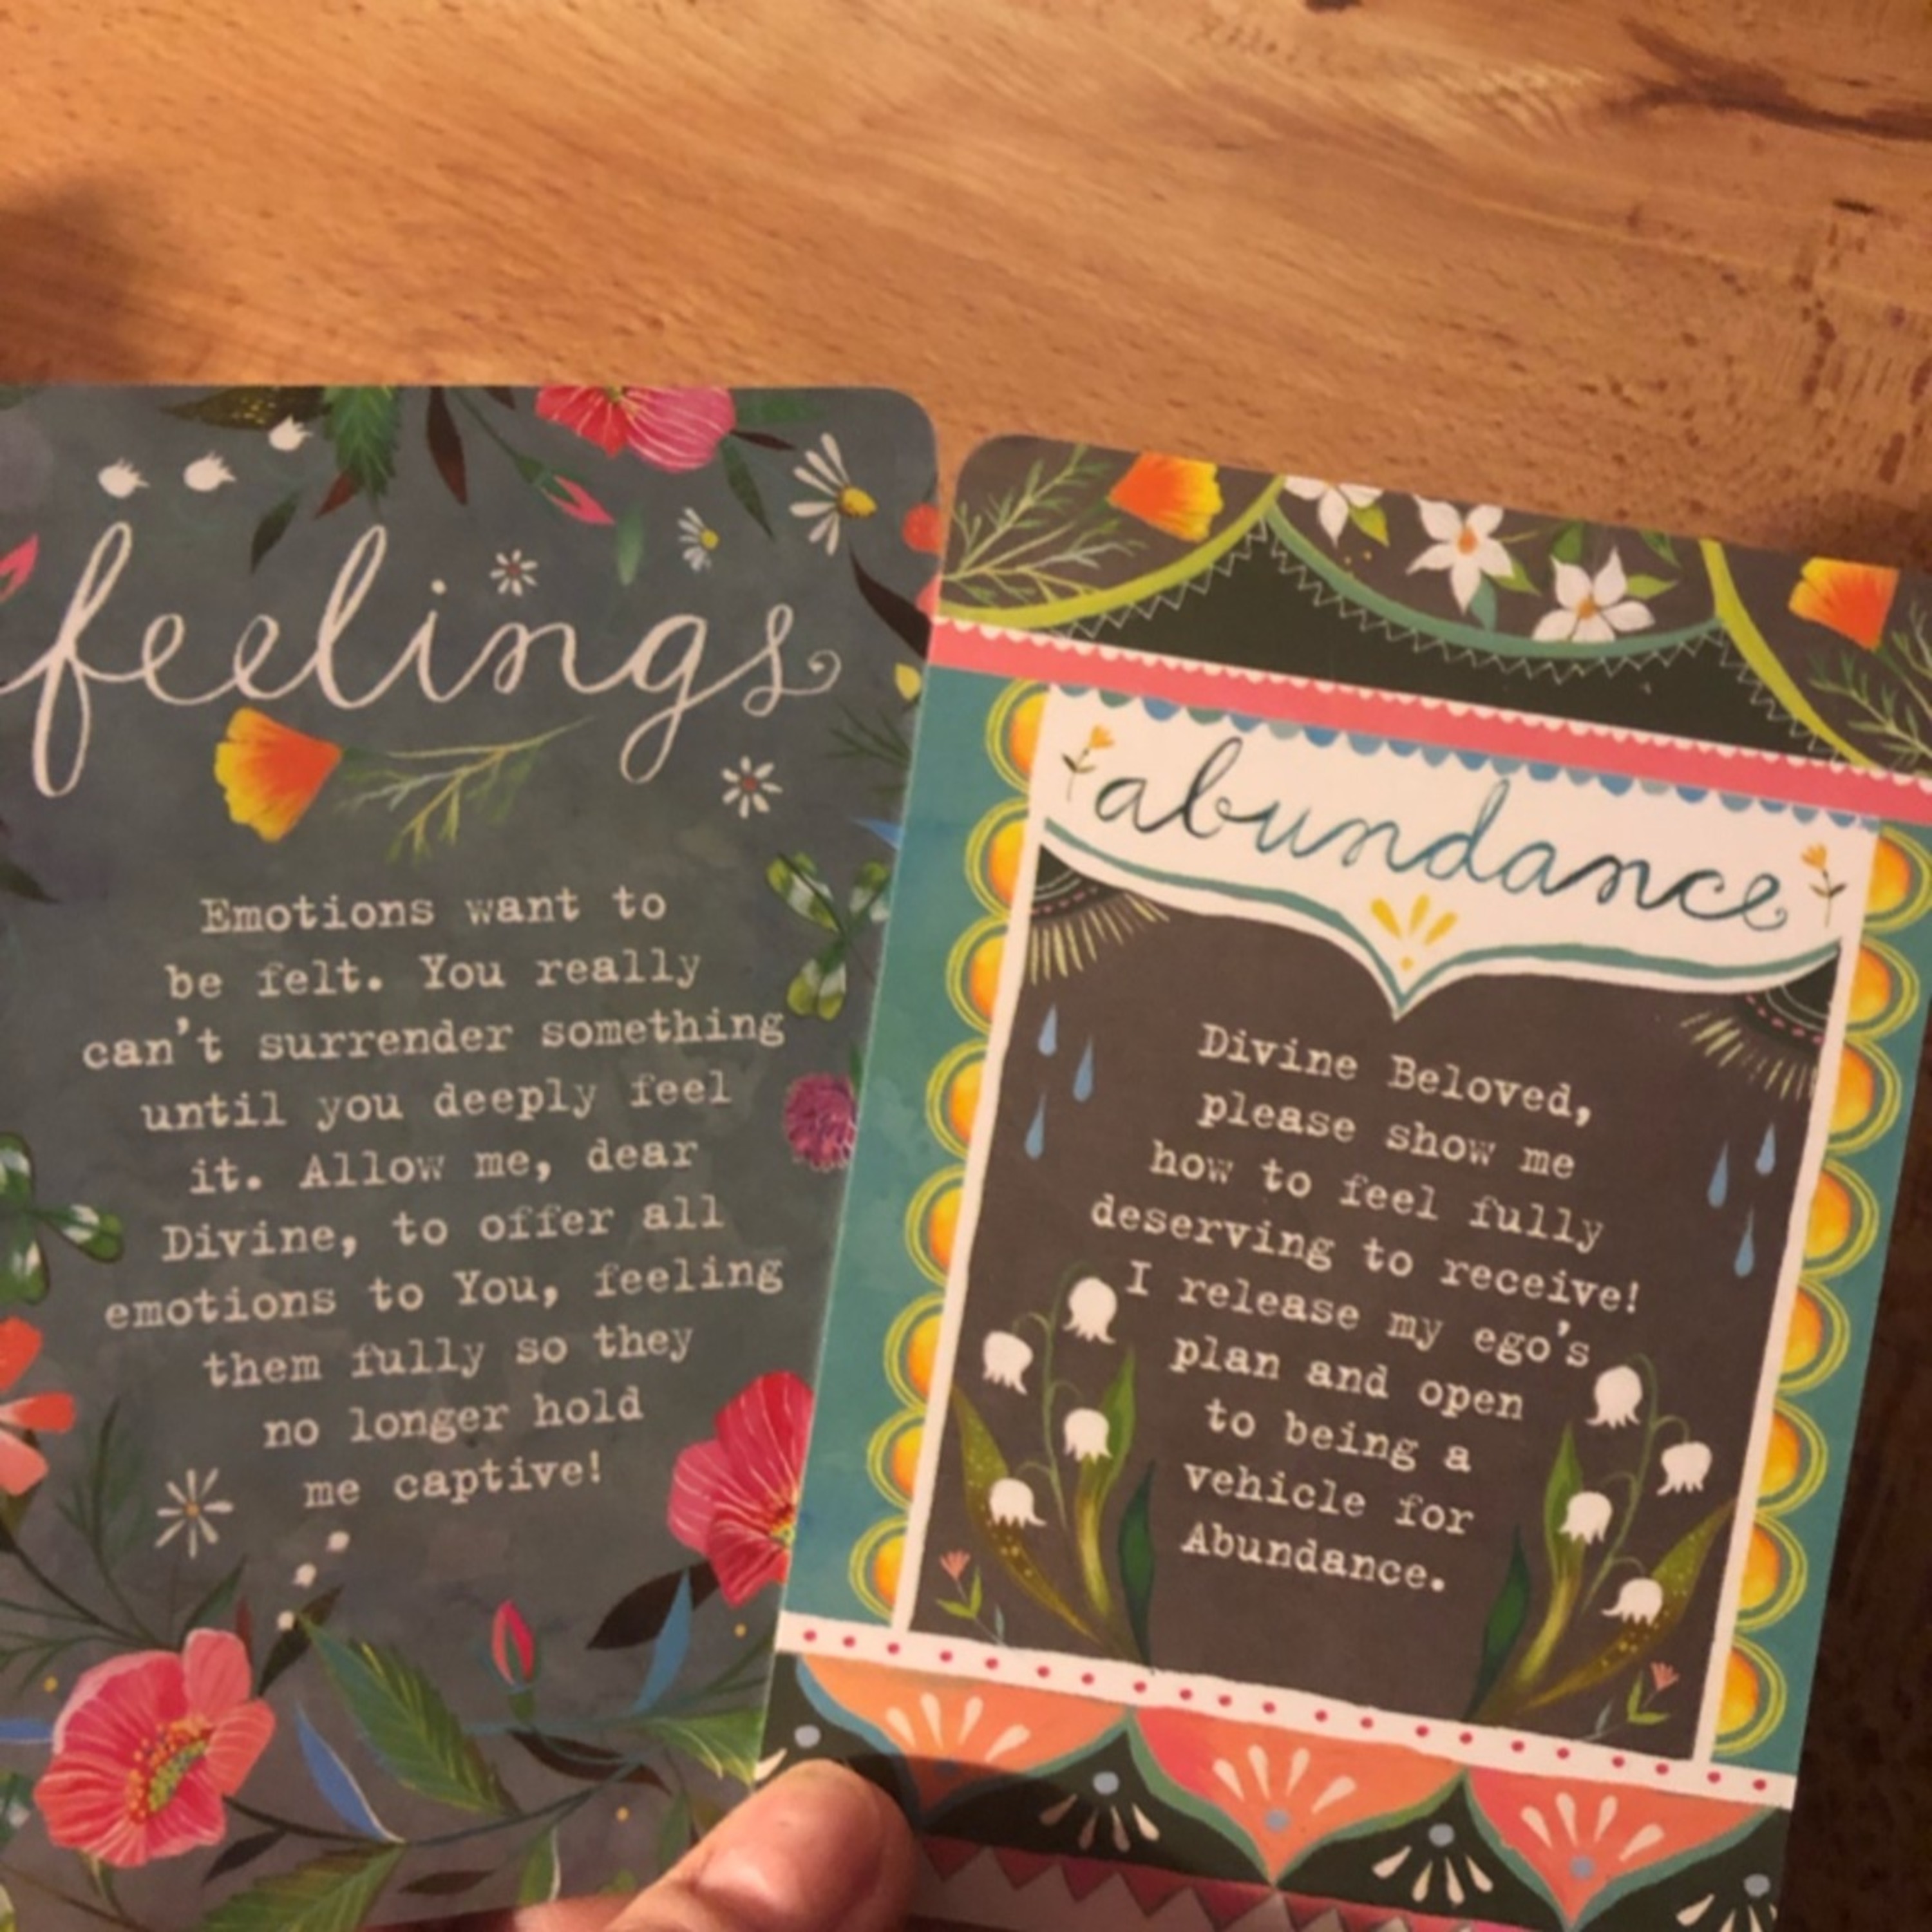 feelings
Emotions want to
be felt. You really
can't surrender something
until you deeply feel
it. Allow me, dear
Divine, to offer all
emotions to You, feeling
them fully so they
no longer hold
me captive!
abundance
Divine Beloved,
please show me
how to feel fully
deserving to receive!
I release my ego's
plan and open
to being a
vehicle for
Abundance.